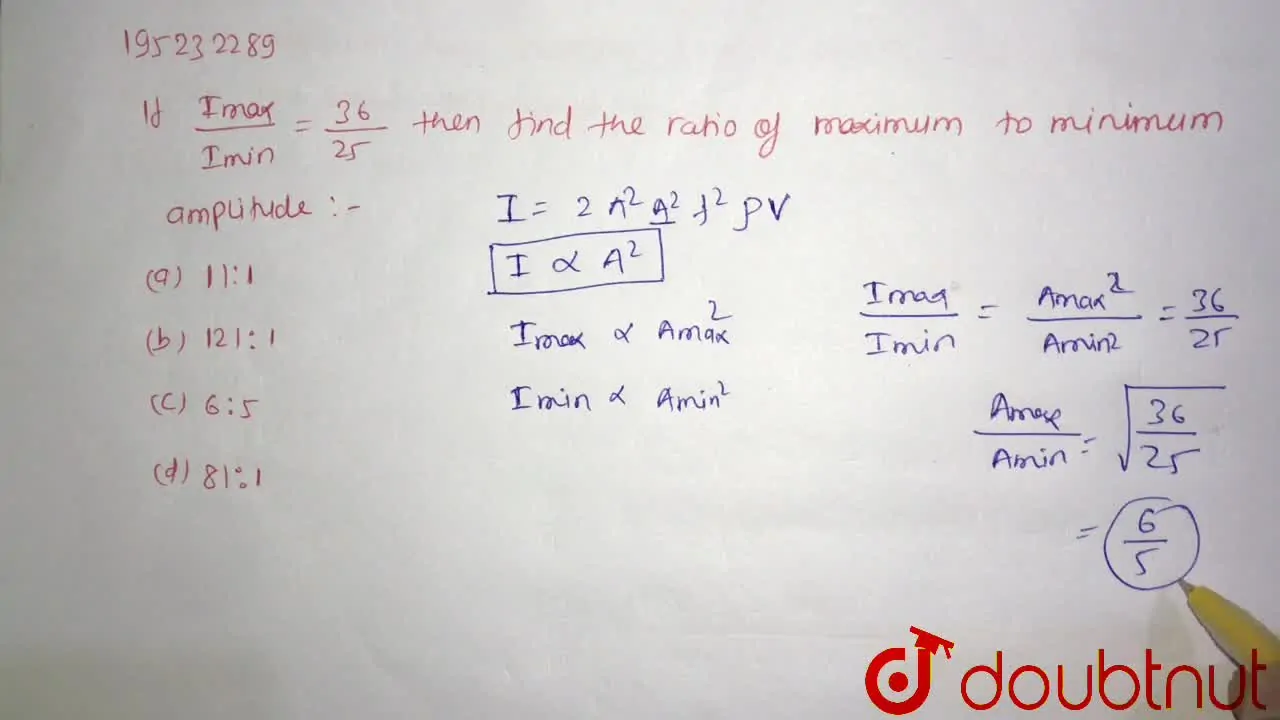 195232289
If Imax/Imin = 36/25 then find the ratio of maximum to minimum
amplitude :-
(a) 11:1
(b) 121:1
(c) 6:5
(d) 81:1
I = 2 π² A² f² ρV
I ∝ A²
Imax ∝ Amax²
Imin ∝ Amin²
Imax/Imin = Amax²/Amin² = 36/25
Amax/Amin = √36/25
= 6/5
doubtnut